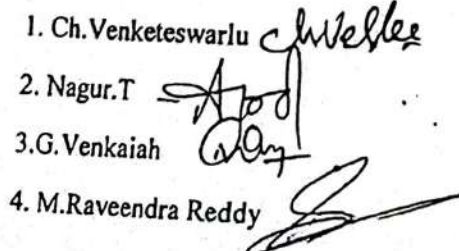 1. Ch.Venketeswarlu
2. Nagur.T
3.G.Venkaiah
4. M.Raveendra Reddy